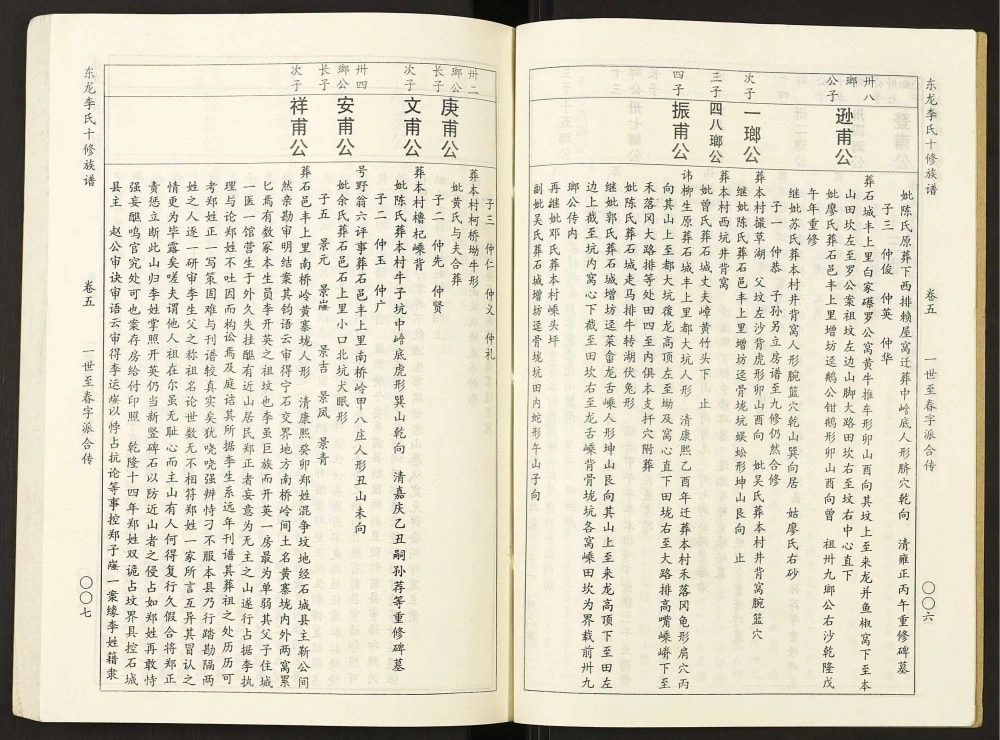 东龙李氏十修族谱
卷五
一世至春字派合传
〇〇六
妣陈氏原葬下西排赖屋窝迁葬中崎底人形脐穴乾向 清雍正丙午重修碑墓
子三 仲俊 仲英 仲华
卅八
瑯
公子
逊甫公
葬石城丰上里白家礤罗公窝黄牛推车形卯山酉向其坟上至来龙并鱼椒窝下至本
山田坎左至罗公案祖坟左边山脚大路田坎右至坟右中心直下
妣廖氏葬石邑丰上里增坊迳鹅公钳鹅形卯山酉向曾 祖卅九瑯公右沙乾隆戊
午年重修
继妣苏氏葬本村井背窝人形腕篮穴乾山巽向居 姑廖氏右砂
子一 仲恭 子孙另立房谱至九修仍然合修
次子
一瑯公
葬本村撮草湖 父坟左沙背虎形卯山酉向 妣吴氏葬本村井背窝腕篮穴
继妣陈氏葬石邑丰上里增坊迳骨垅坑蜈蚣形坤山艮向 止
三子
四八瑯公
葬本村西坑井背窝
妣曾氏葬石城丈夫嶂黄竹头下 止
四子
振甫公
讳柳生原葬石城丰上里都大坑人形 清康熙乙酉年迁葬本村禾落冈龟形肩穴丙
向其山上至都大坑後龙高顶左至坳及窝心直下田垅右至大路排高嘴嵊嵴下至
禾落冈大路排等处田四至内俱本支扦穴附葬
继妣郭氏葬石城走马排牛转湖伏兔形
继妣陈氏葬石城增坊迳菜畲龙舌嵊人形坤山艮向其山上至来龙高顶下至田左
边上截至坑内窝心下截至田坎右至龙舌嵊背骨垅坑各窝嵊田坎为界载前卅九
瑯公传内
再继妣邓氏葬本村嵊头坪
副妣吴氏葬石城增坊迳骨垅坑田内蛇形午山子向
卅二
瑯公
长子
庚甫公
子三 仲仁 仲文 仲礼
葬本村柯桥坳牛形
妣黄氏与夫合葬
子二 仲先 仲贤
次子
文甫公
葬本村橹杞嵊背
妣陈氏葬本村牛子坑中崎底虎形巽山乾向 清嘉庆乙丑嗣孙荐等重修碑墓
子二 仲玉 仲广
卅四
瑯公
长子
安甫公
号野翁六评事葬石邑丰上里南桥岭甲八庄人形丑山未向
妣余氏葬石邑石上里小口北坑犬眠形
子五 景元 景蓙 景吉 景凤 景青
次子
祥甫公
葬石邑丰上里南桥岭黄寨垅人形 清康熙癸卯郑姓混争坟地经石城县主靳公间
然亲勘审明结案其钧语云审得宁石交界地方南桥岭间土名黄寨垅内外两窝累
匕焉有数冢本生员李开英之祖坟也李虽巨族而开英一房最为单弱其父子住城
一医一馆营生于外久失挂醮有近山居民郑正者妄意为无主之山遂行占据李执
理与论郑姓不吐因而构讼焉及庭诘其所据李生系远年刊谱其葬祖之处历历可
考郑姓正一写策困难与刊谱较真实矣犹哓哓强辨恃刁不服本县乃行踏勘隔两
姓之人逐一研审李生父之称祖名论世数无不相符郑姓一家所言互异其冒认之
情更为毕露矣嗟夫谓他人祖在尔虽无耻心而主山有人何得复行久假合将郑正
责惩立断此山归李姓掌照开英仍当新竖碑石以防近山者之侵占如郑姓再敢恃
强妄醮鸣官究处可也案存房给付印照 乾隆十四年郑姓双诡占坟界具控石城
县主 赵公审诀审语云审得李运蓙以悖占抗论等事控郑子蓙一案缘李姓籍隶
东龙李氏十修族谱
卷五
一世至春字派合传
〇〇七